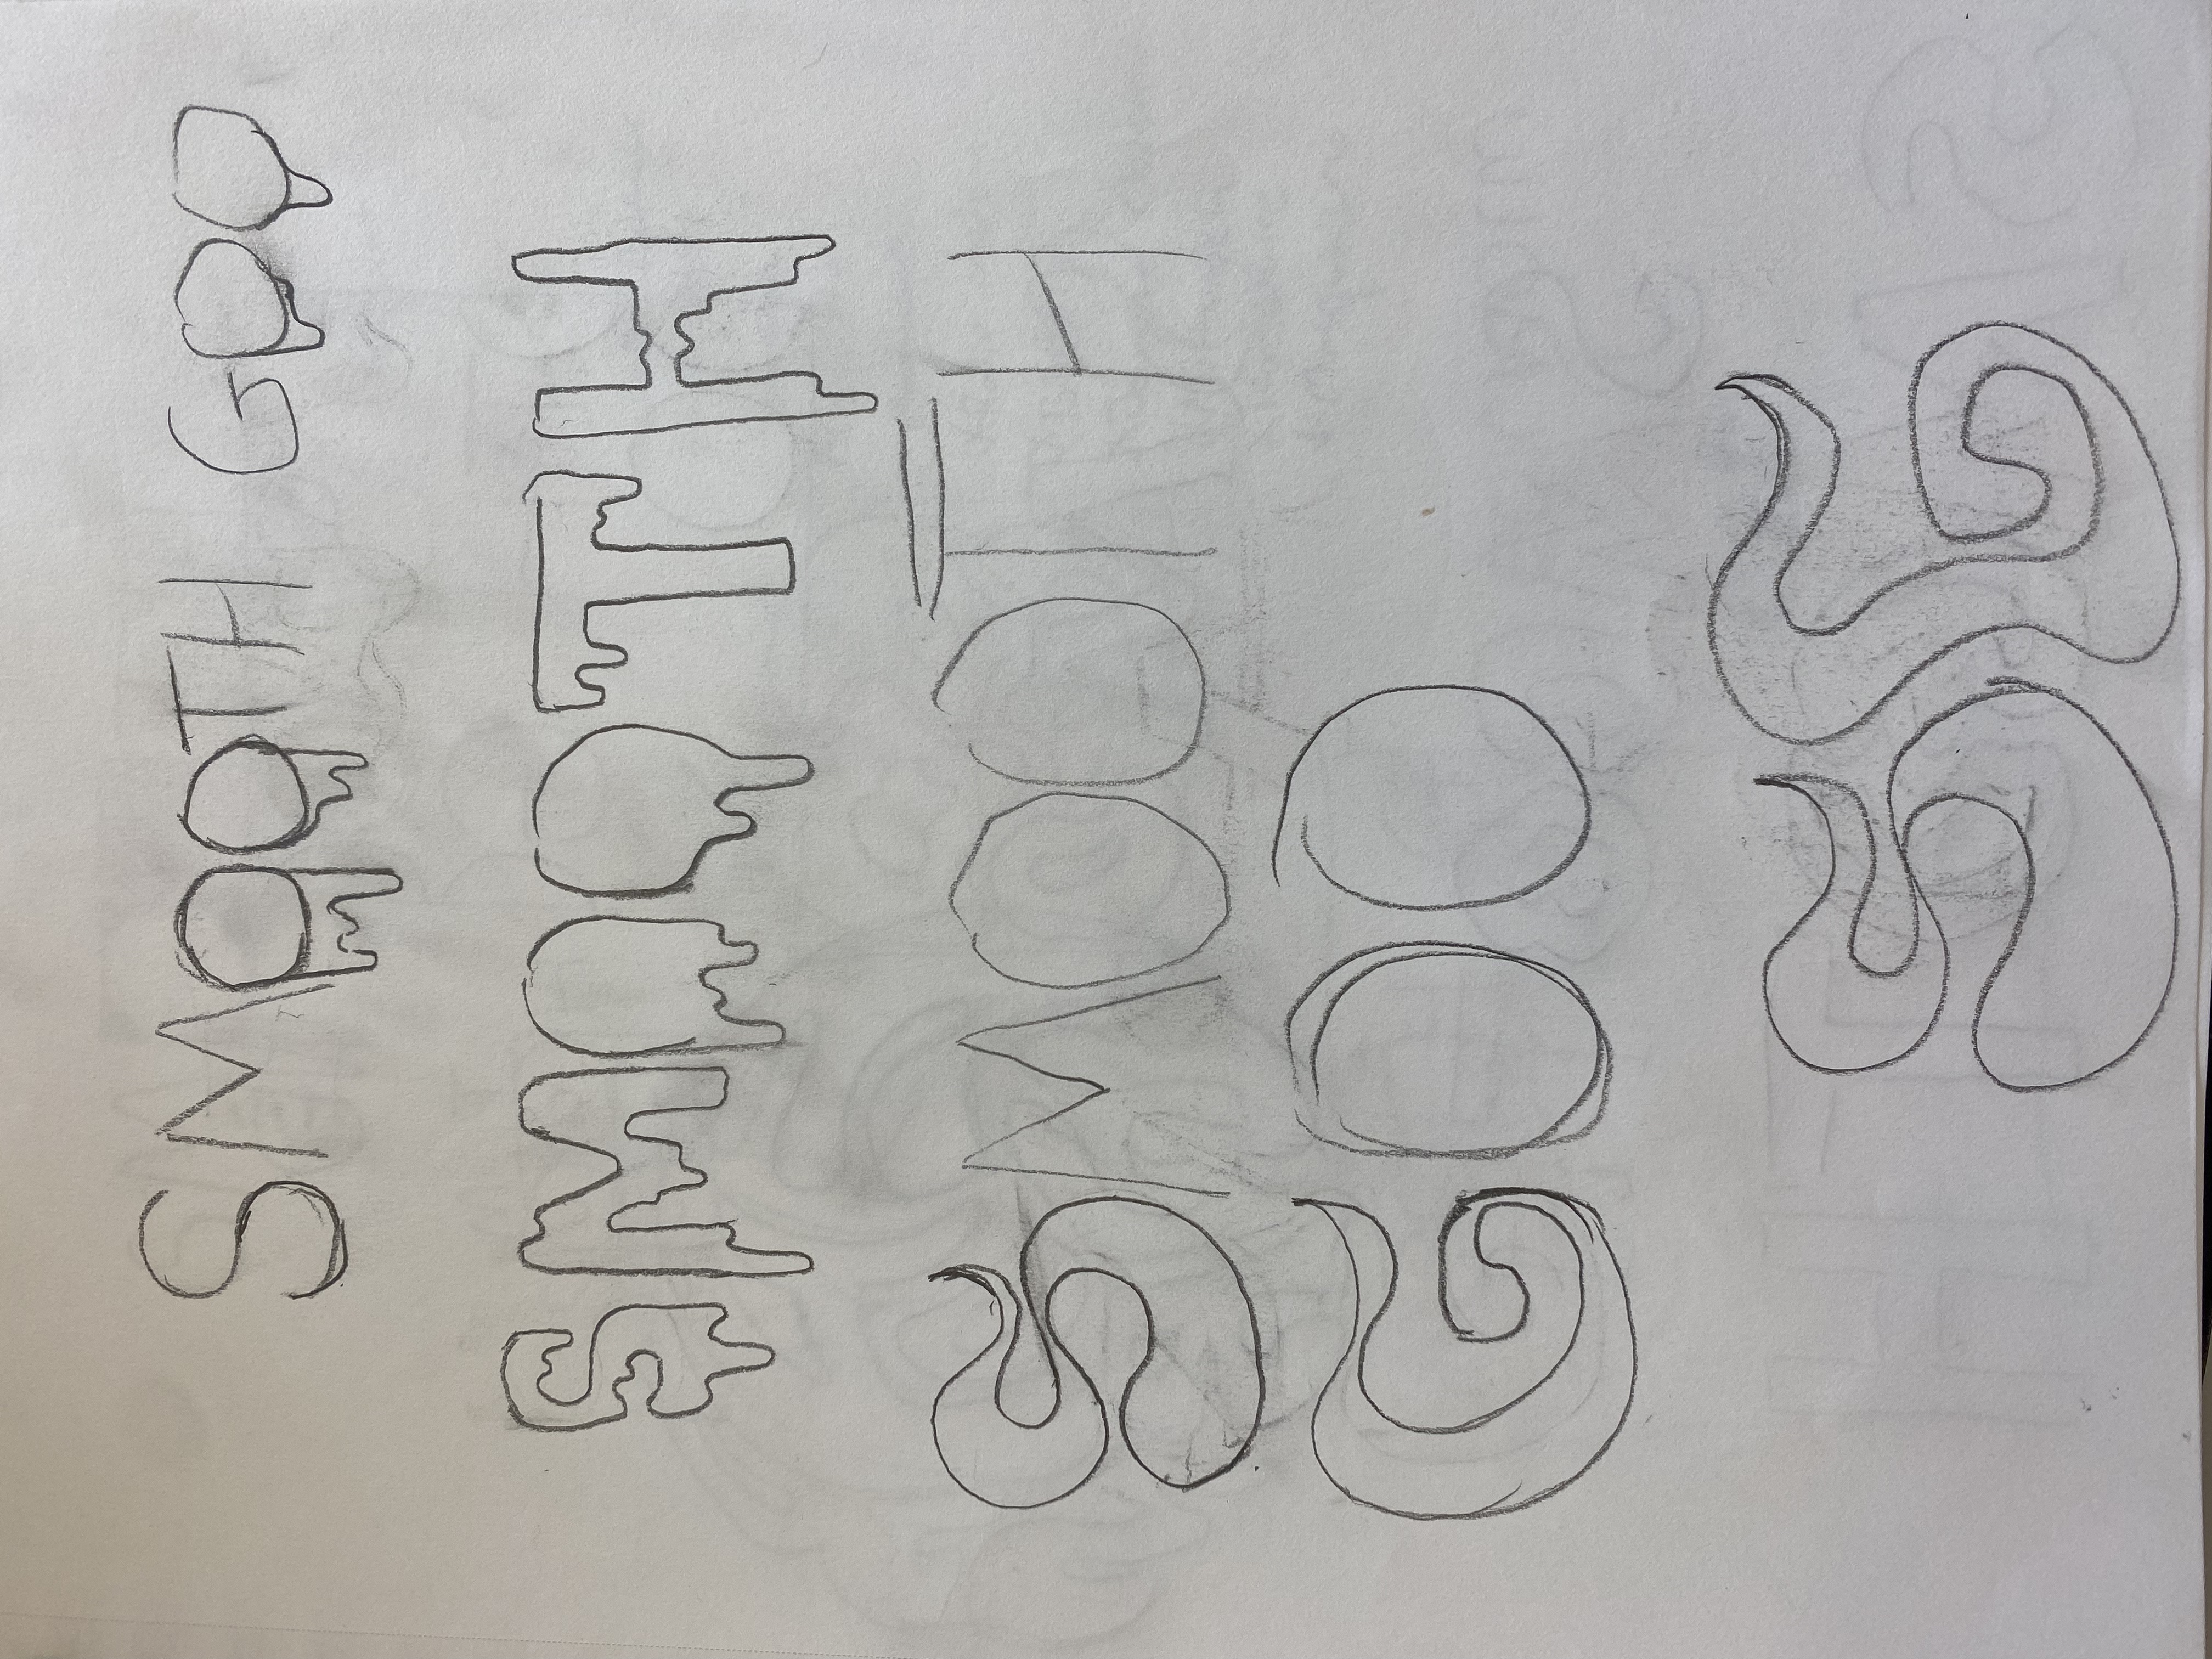 SMOOTH GOO
SMOOTH
SMOOTH
GOO
SG